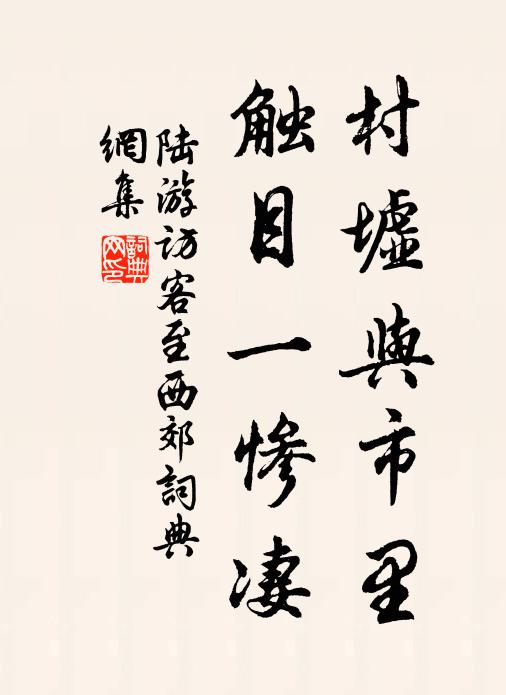 村墟與市里
触目一惨凄
陆游访客至西郊詞典
網集
詞典
网印